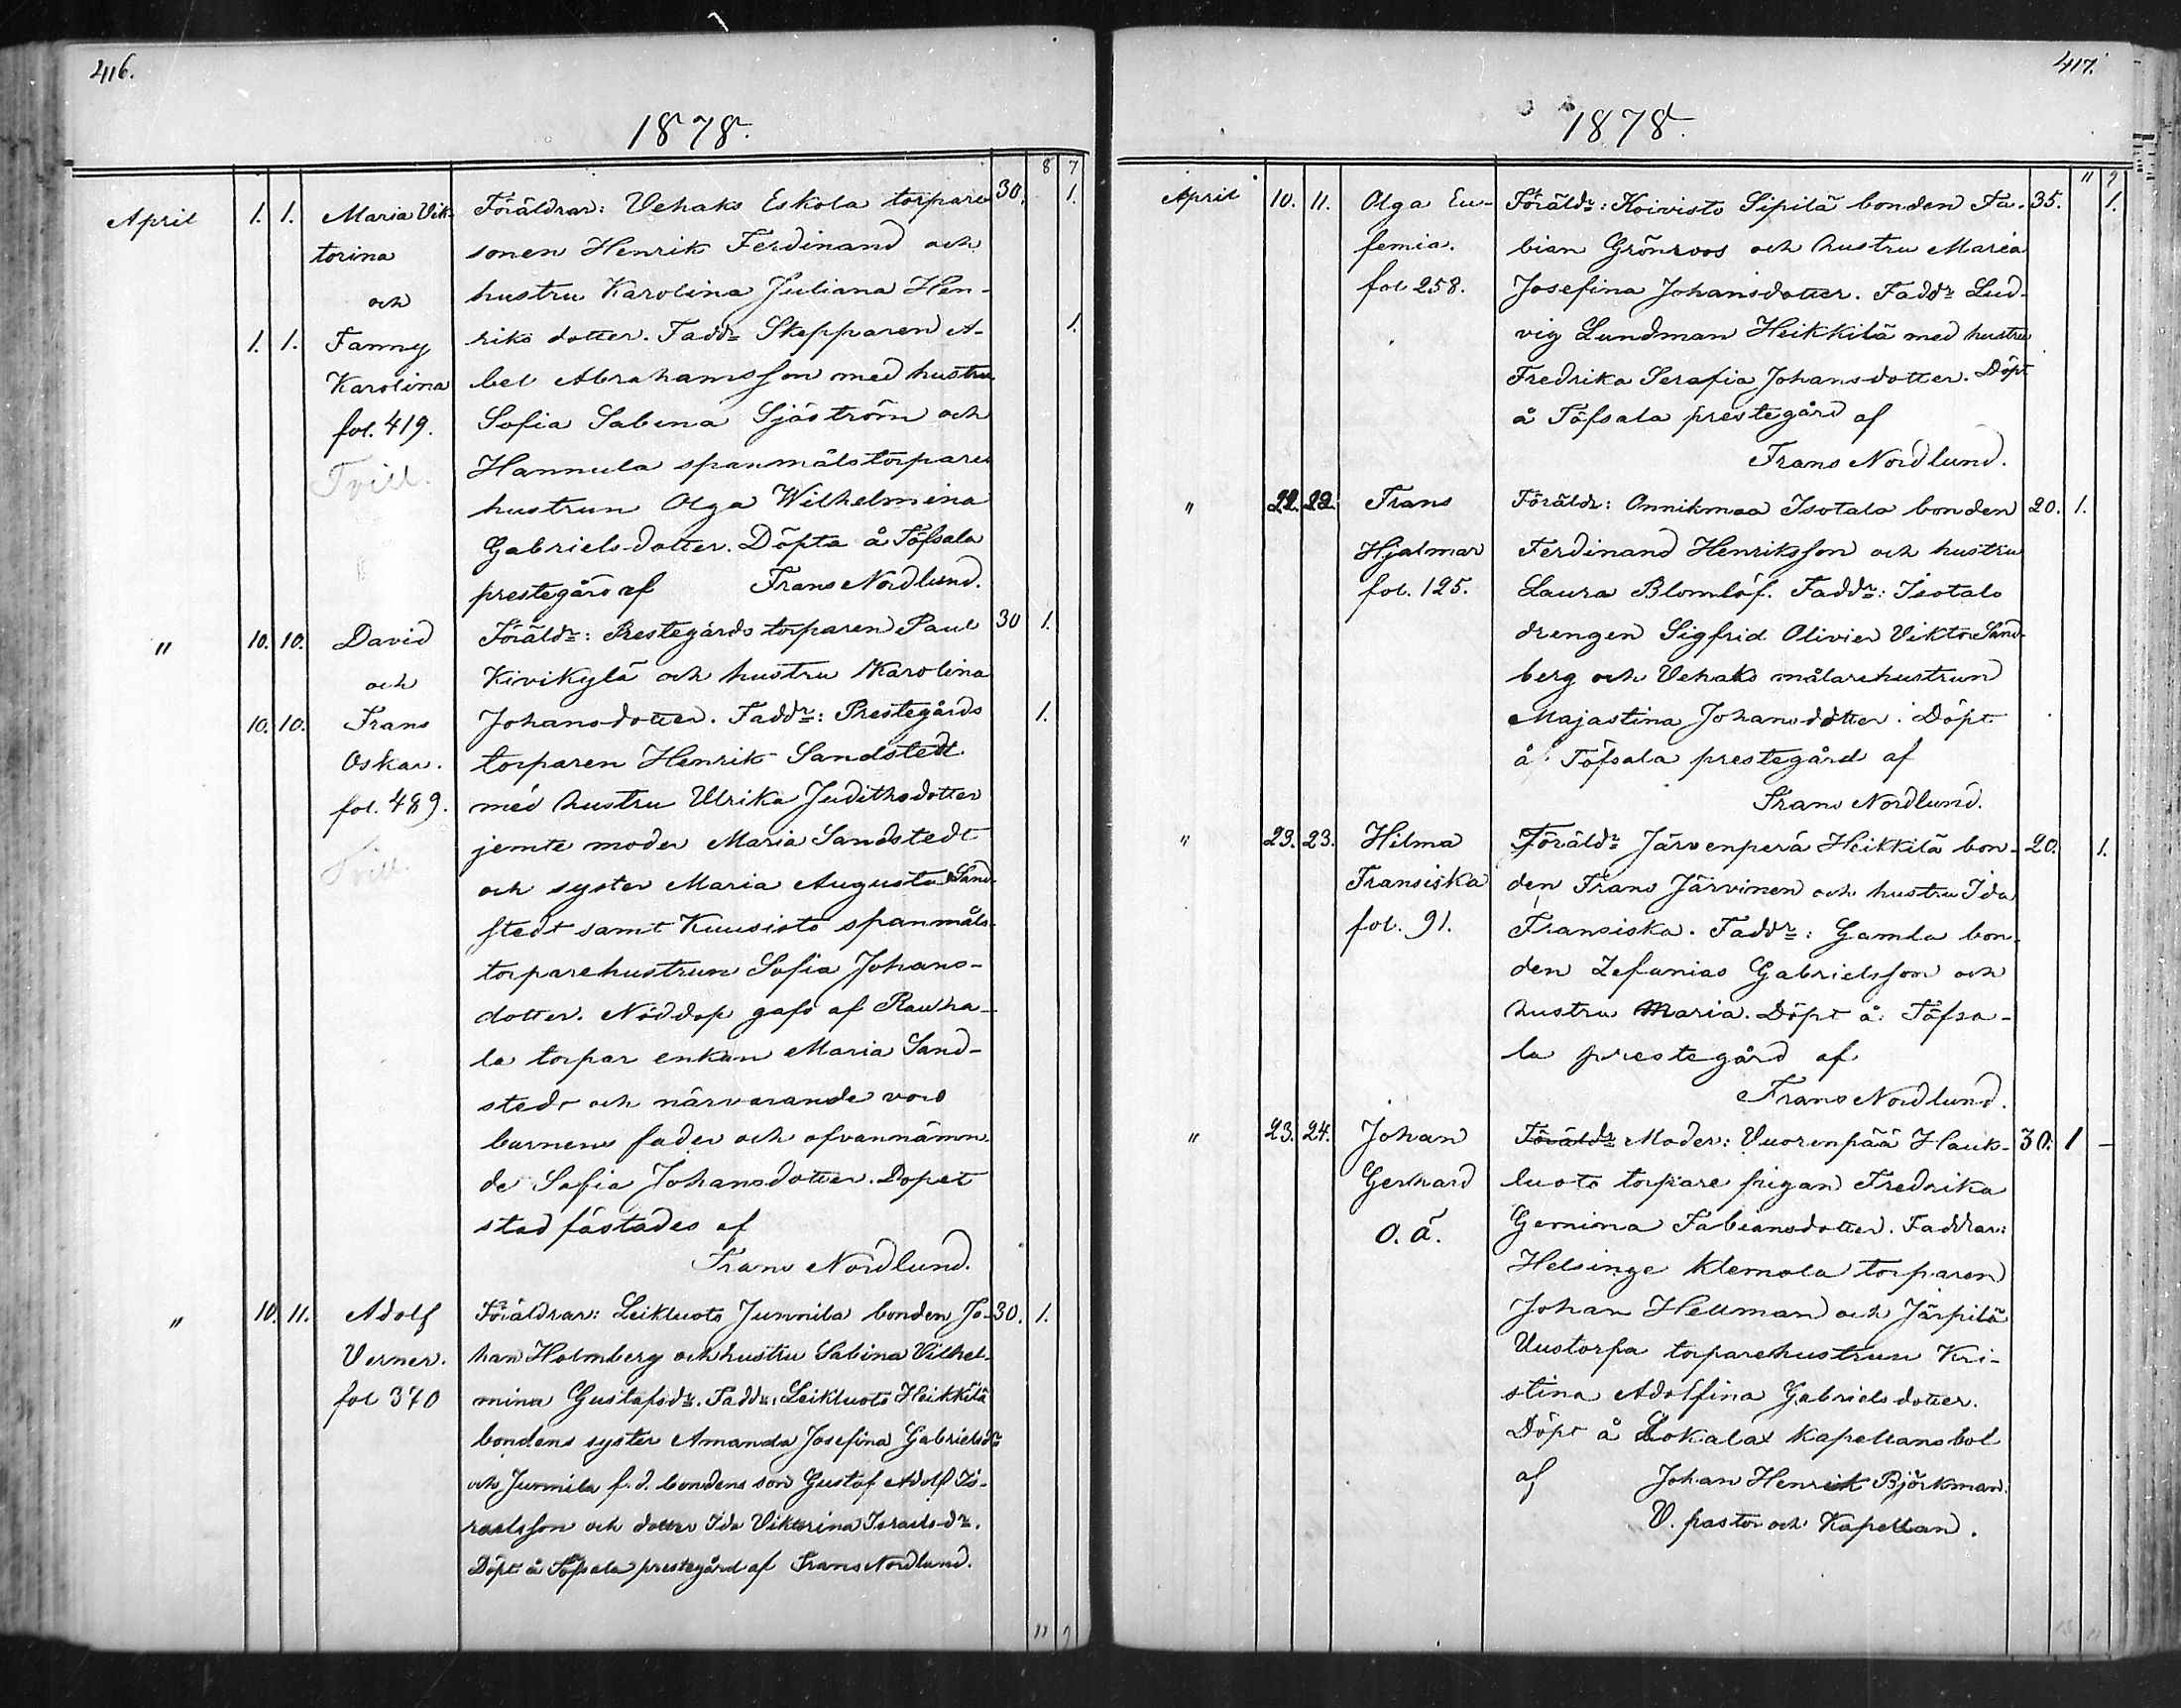 416.
1878.
8 7
April 1. 1. Maria Vik- Föräldrar: Vehaks Eskola torpare 30. 1.
torina sonen Henrik Ferdinand och
och hustru Karolina Juliana Hen-
1. 1. Fanny riks dotter. Faddr Skepparen A- 1.
Karolina bel Abrahamsson med hustru
fol. 419. Sofia Sabina Sjöström och
Tvill. Hannula spanmålstorpare
hustrun Olga Wilhelmina
Gabrielsdotter. Döpta å Töfsala
prestegård af Frans Nordlund.
" 10. 10. David Föräldr: Prestegårds torparen Paul 30 1.
och Kivikylä och hustru Karolina
10. 10. Frans Johansdotter. Faddr: Prestegårds 1.
Oskar. torparen Henrik Sandstedt
fol. 489. med hustru Ulrika Judithsdotter
Tvill. jemte moder Maria Sandstedt
och syster Maria Augusta Sand-
stedt samt Kuusisto spanmåls-
torparehustrun Sofia Johans-
dotter. Nöddop gafs af Rauha-
la torpar enkan Maria Sand-
stedt och närvarande voro
barnens fader och ofvannämn-
de Sofia Johansdotter. Dopet
stadfästades af
Frans Nordlund.
" 10. 11. Adolf Föräldrar: Leikluoto Junnila bonden Jo- 30. 1.
Verner. han Holmberg och hustru Sabina Vilhel-
fol 370 mina Gustafsdr. Faddr: Leikluoto Heikkilä
bondens syster Amanda Josefina Gabrielsdr
och Junnila f.d. bondens son Gustaf Adolf Is-
raelsson och dotter Ida Viktorina Israelsdr.
Döpt å Töfsala prestegård af Frans Nordlund.
11 9
417.
1878.
11 9
April 10. 11. Olga Eu- Föräldr: Koivisto Sipilä bonden Fa- 35. 1.
femia. bian Grönroos och hustru Maria
fol 258. Josefina Johansdotter. Faddr Lud-
vig Lundman Heikkilä med hustru
Fredrika Serafia Johansdotter. Döpt
å Töfsala prestegård af
Frans Nordlund.
" 22. 22. Frans Föräldr: Onnikmaa Isotalo bonden 20. 1.
Hjalmar Ferdinand Henriksson och hustru
fol. 125. Laura Blomlöf. Faddr: Isotalo
drengen Sigfrid Olivier Viktor Sand-
berg och Vehaks målarehustrun
Majastina Johansdotter. Döpt
å Töfsala prestegård af
Frans Nordlund.
" 23. 23. Hilma Föräldr Järvenperä Heikkilä bon- 20. 1.
Fransiska den Frans Järvinen och hustru Ida
fol. 91. Fransiska. Faddr: Gamla bon-
den Zefanias Gabrielsson och
hustru Maria. Döpt å Töfsa-
la prestegård af
Frans Nordlund.
" 23. 24. Johan Föräldr Moder: Vuorenpää Hauk- 30. 1 -
Gerhard luoto torpare pigan Fredrika
O. ä. Gemina Fabiansdotter. Faddrar:
Helsinge Klemola torparen
Johan Hellman och Järpilä
Uustorpa torparehustrun Kri-
stina Adolfina Gabrielsdotter.
Döpt å Lokalax kapellansbol
af Johan Henrik Björkman.
V. pastor och Kapellan.